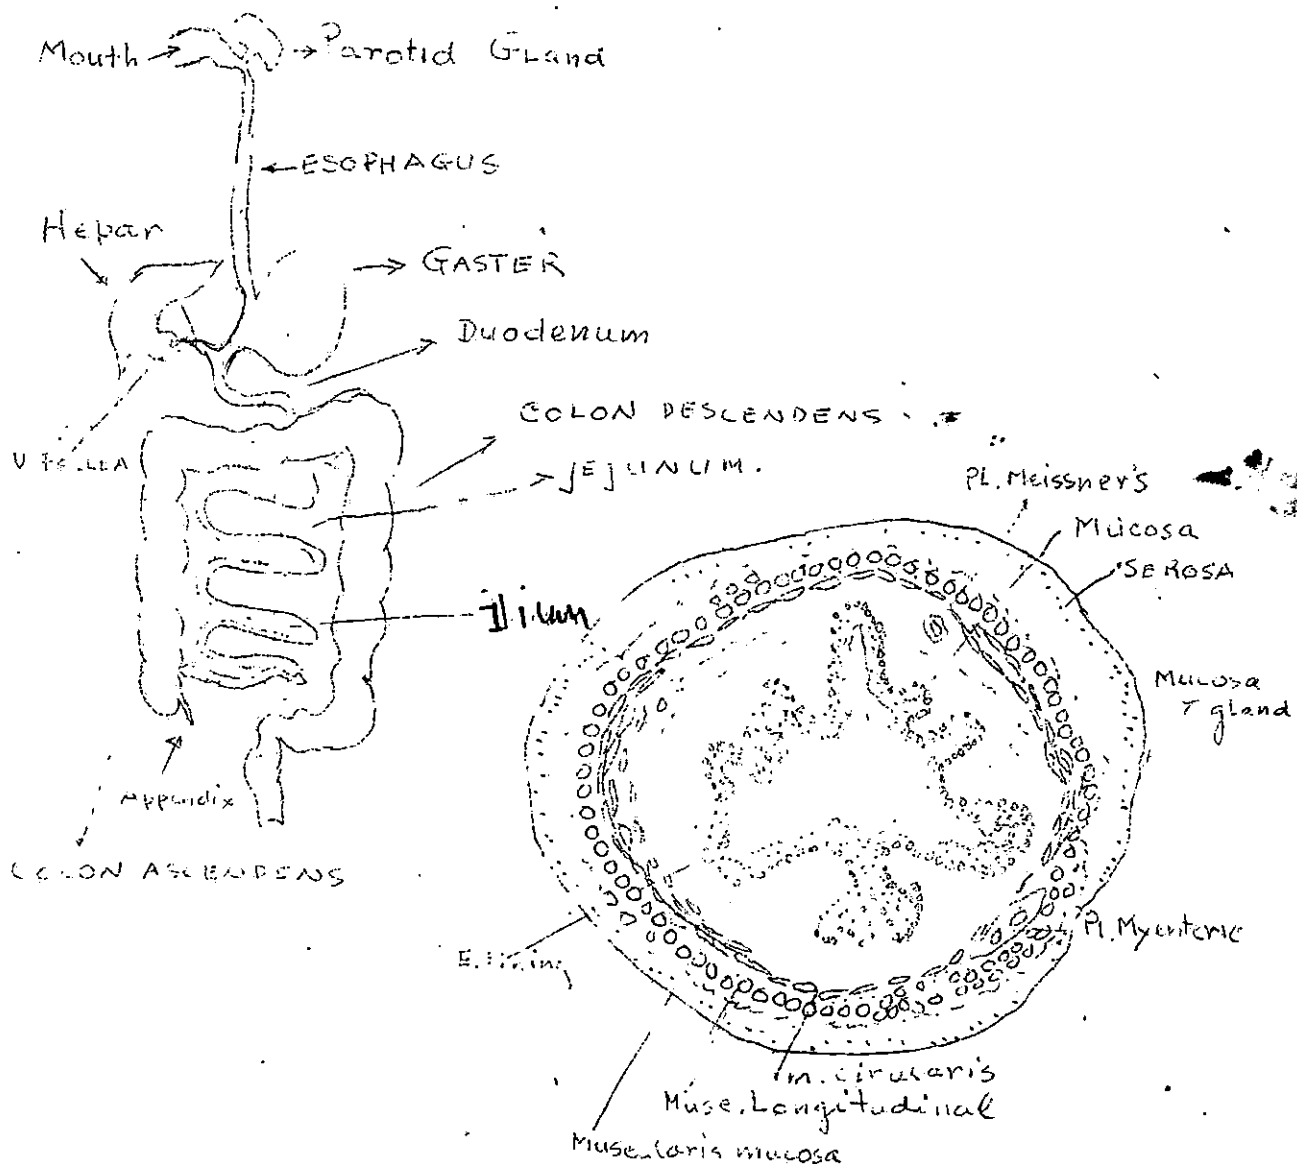 Mouth
Parotid Gland
ESOPHAGUS
Hepar
GASTER
Duodenum
COLON DESCENDENS
JEJUNUM.
Appendix
COLON ASCENDENS
PL. Meissner's
Mucosa
SEROSA
Mucosa
gland
Pl. Myenteric
m. cirucaris
Muse. Longitudinal
Muse laris mucosa